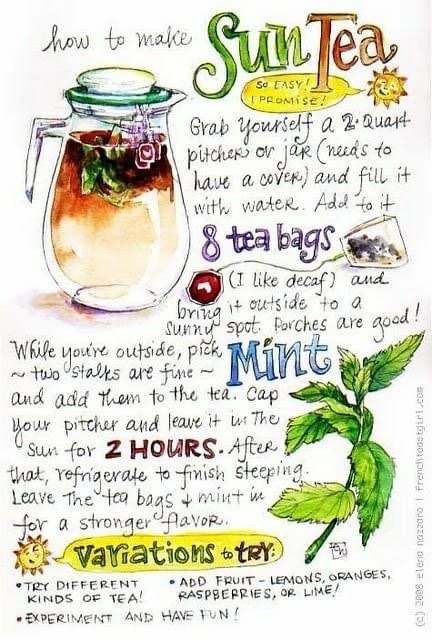 how to make Sun Tea
SO EASY!
I PROMISE!
Grab yourself a 2-Quart
pitcher or jar (needs to
have a cover) and fill it
with water. Add to it
8 tea bags
(I like decaf) and
bring it outside to a
sunny spot. Porches are good!
While you're outside, pick Mint
~ two stalks are fine ~
and add them to the tea. Cap
your pitcher and leave it in the
sun for 2 HOURS. After
that, refrigerate to finish steeping.
Leave the tea bags & mint in
for a stronger flavor.
Variations to TRY:
• TRY DIFFERENT
KINDS OF TEA!
• EXPERIMENT AND HAVE FUN!
• ADD FRUIT - LEMONS, ORANGES,
RASPBERRIES, OR LIME!
(c) 2008 elena nazzaro | frenchtoastgirl.com